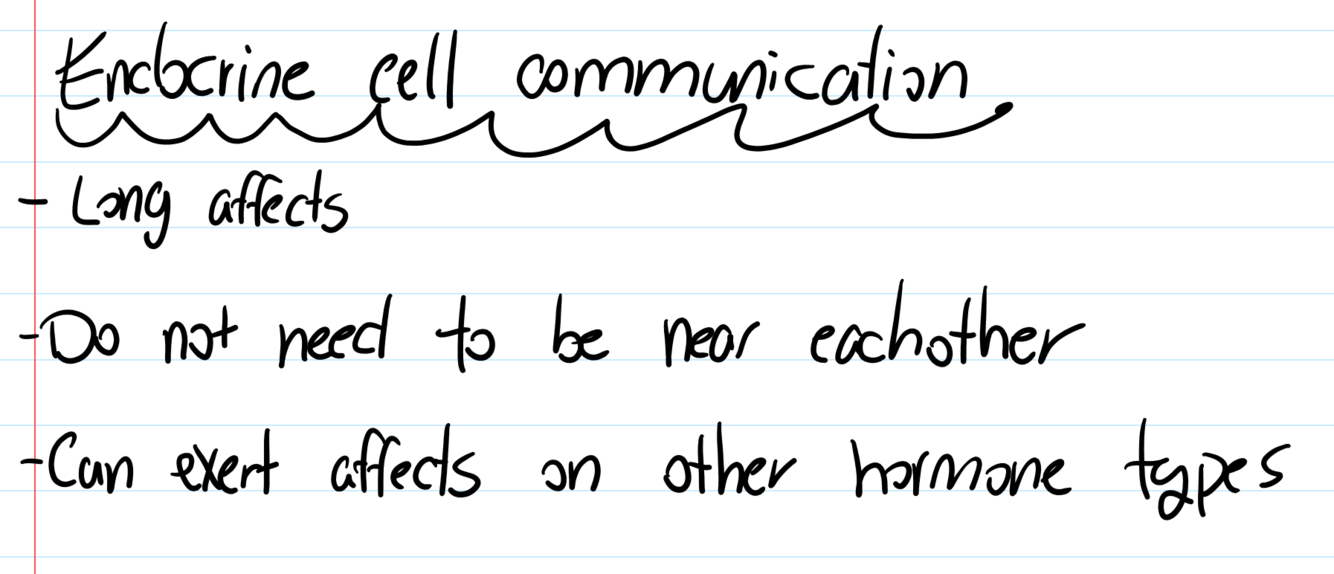 Endocrine cell communication
- Long affects
- Do not need to be near eachother
- Can exert affects on other hormone types